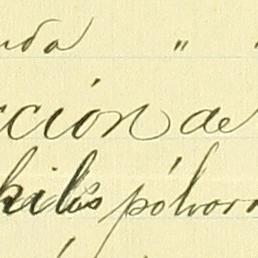 nda " "
cción de
kilos pólvor